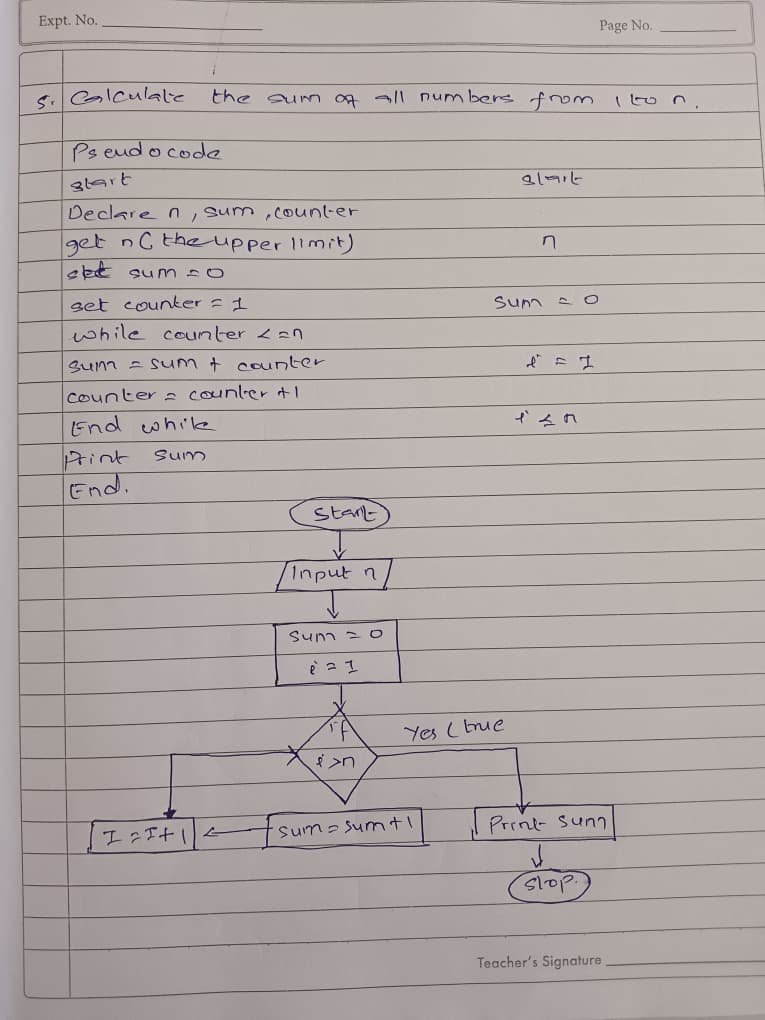 Expt. No.
Page No.
5. Calculate the sum of all numbers from 1 to n.
Pseudocode
start
start
Declare n, sum, counter
get n (the upper limit)
n
set sum = 0
set counter = 1
sum = 0
while counter <=n
sum = sum + counter
i = 1
counter = counter +1
End while
i ≤ n
Print sum
End.
Start
Input n
sum = 0
i = 1
if
Yes (true
i >n
I = I + 1
sum = sum + 1
Print sum
Stop.
Teacher's Signature